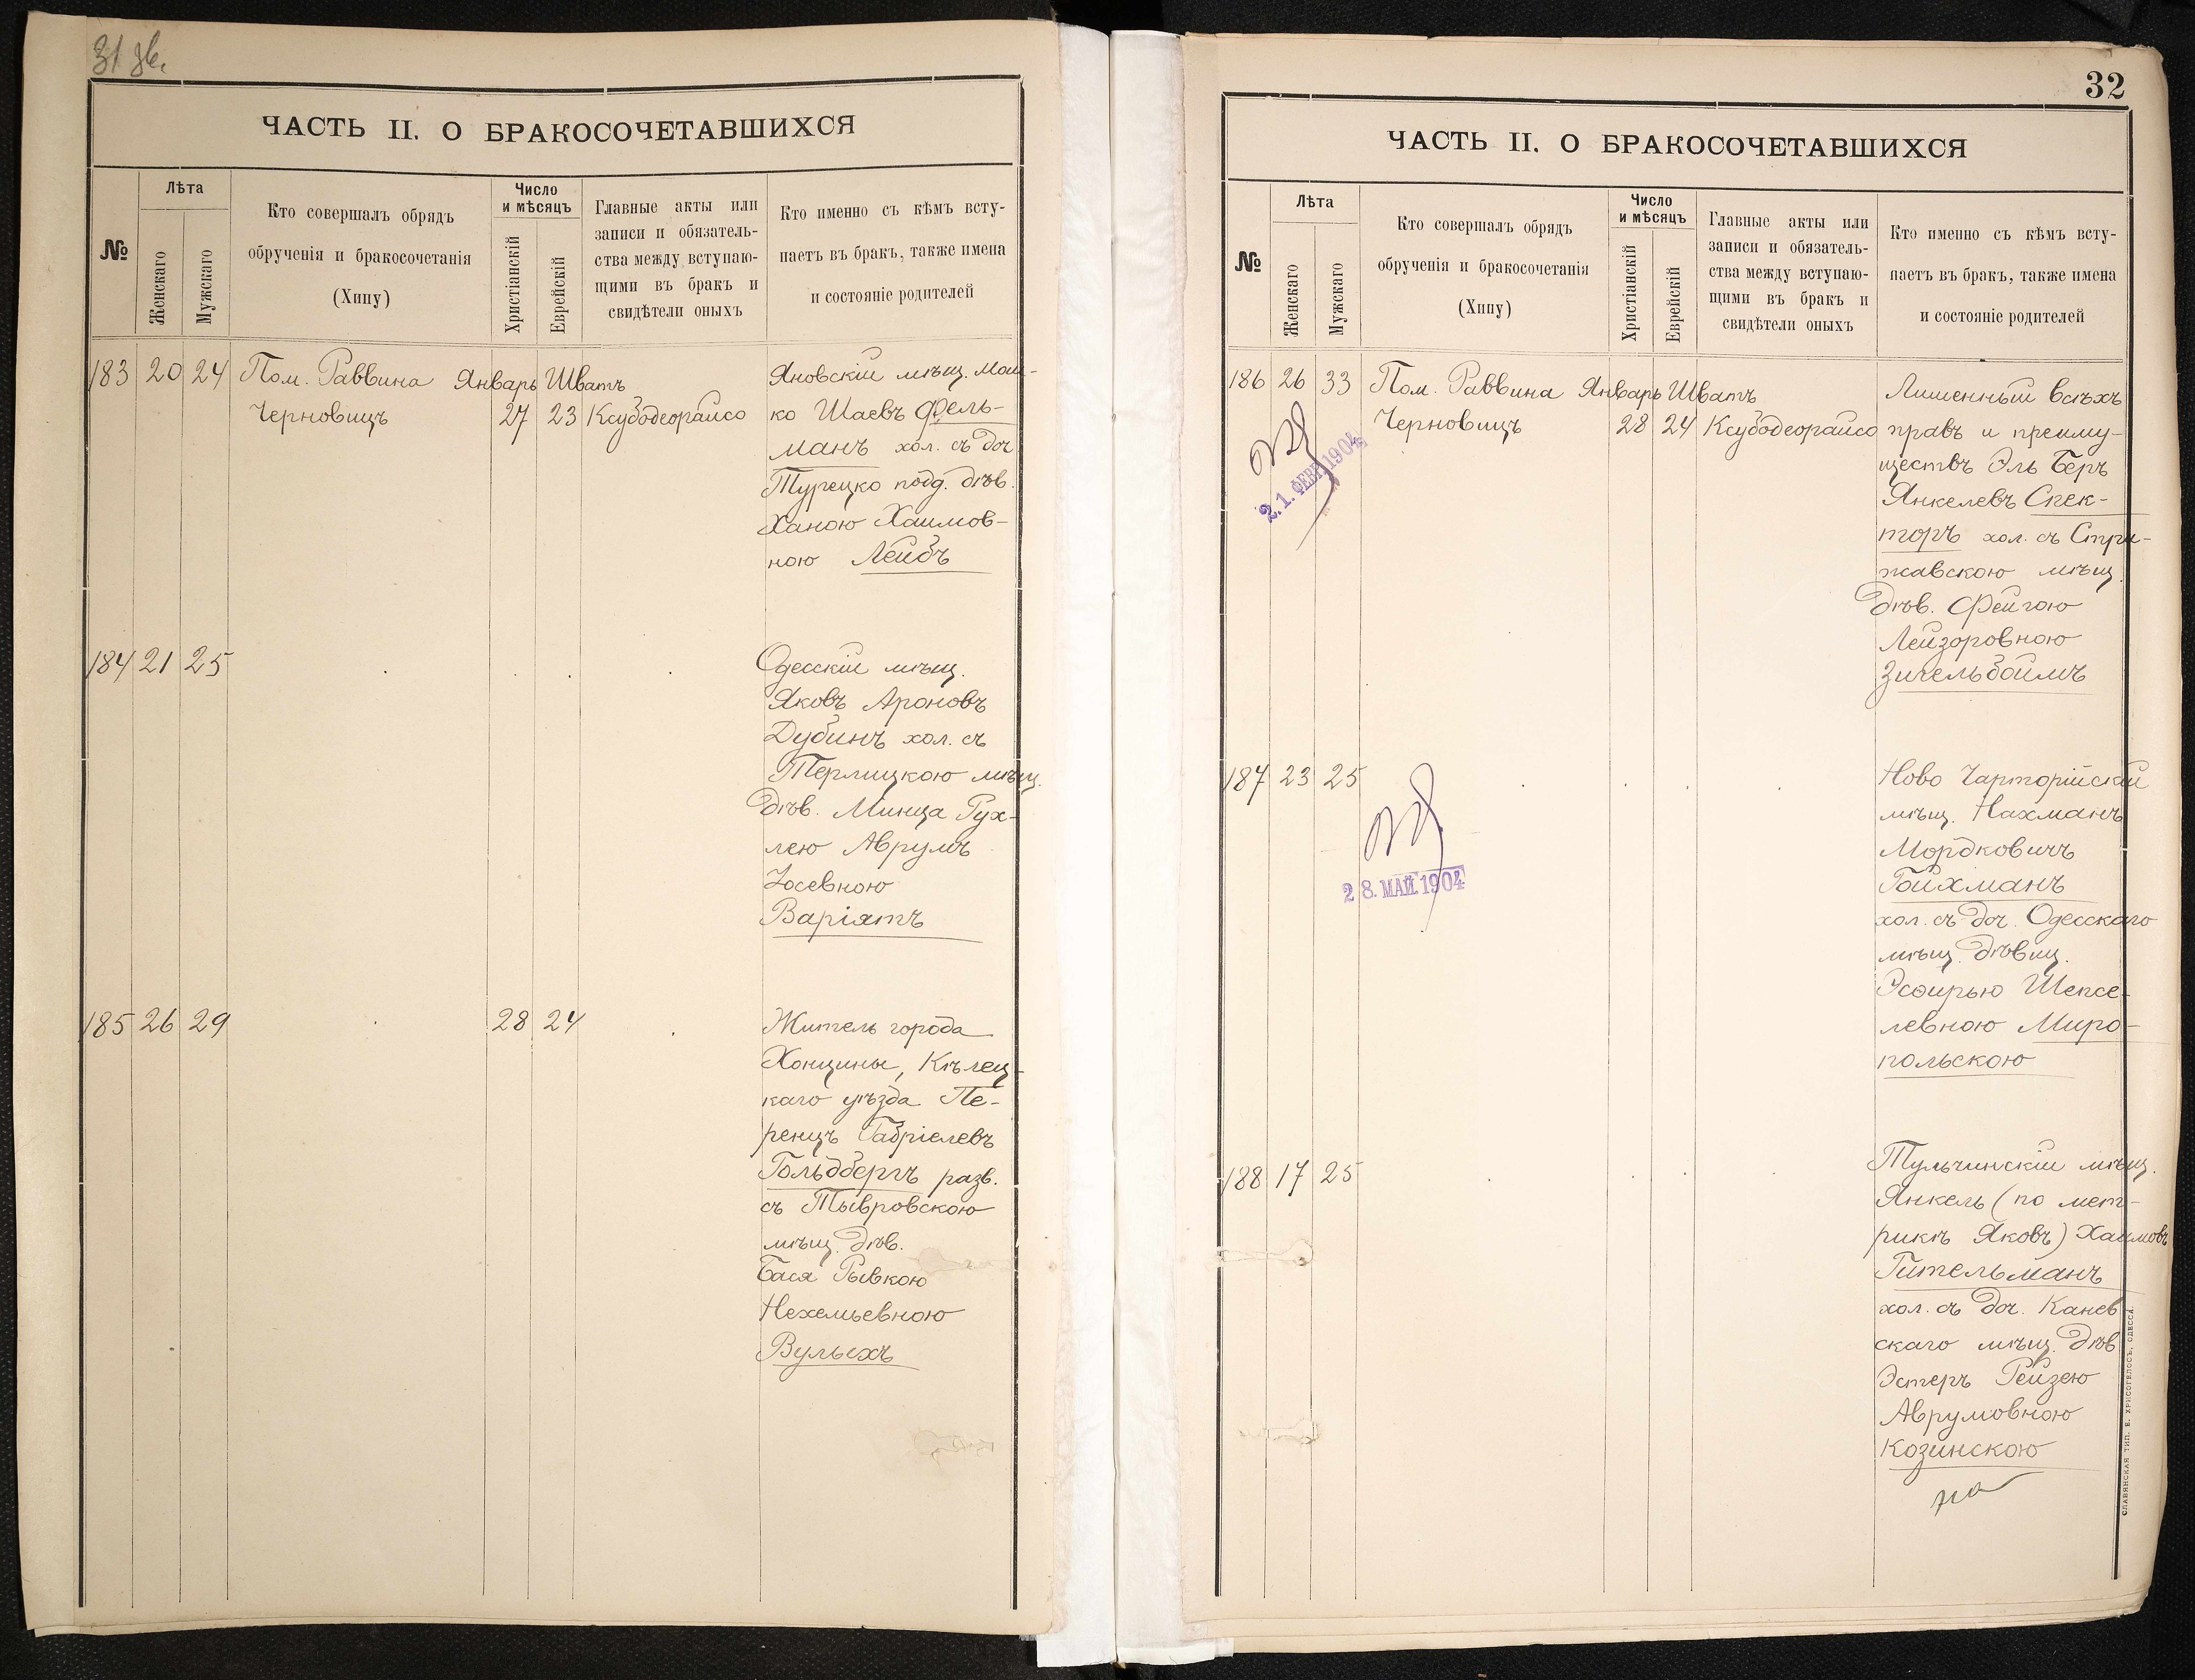 31 зв.
ЧАСТЬ II. О БРАКОСОЧЕТАВШИХСЯ
№
Лѣта
Женскаго
Мужскаго
Кто совершалъ обрядъ
обрученія и бракосочетанія
(Хипу)
Число
и мѣсяцъ
Христіанскій
Еврейскій
Главные акты или
записи и обязатель-
ства между вступаю-
щими въ бракъ и
свидѣтели оныхъ
Кто именно съ кѣмъ всту-
паетъ въ бракъ, также имена
и состояніе родителей
183 20 24 Пом. Раввина Январь Шватъ
Черновицъ 27 23 Ксубодеорайсо
Яновскій мѣщ. Мош-
ко Шаевъ Фель-
манъ хол. съ доч
Турецко подд. дѣв.
Ханою Хаимов-
ною Лейбъ
184 21 25
Одесскій мѣщ.
Яковъ Ароновъ
Дубинъ хол. съ
Терлицкою мѣщ.
дѣв. Минца Рух-
лею Аврумъ
Іосевною
Варіятъ
185 26 29 28 24
Житель города
Хонцины, Кѣлец-
каго уѣзда Пе-
ренцъ Габріелевъ
Гольдбергъ разв.
съ Тывровскою
мѣщ. дѣв.
Бася Рывкою
Нехемьевною
Вульехъ
32
ЧАСТЬ II. О БРАКОСОЧЕТАВШИХСЯ
№
Лѣта
Женскаго
Мужскаго
Кто совершалъ обрядъ
обрученія и бракосочетанія
(Хипу)
Число
и мѣсяцъ
Христіанскій
Еврейскій
Главные акты или
записи и обязатель-
ства между вступаю-
щими въ бракъ и
свидѣтели оныхъ
Кто именно съ кѣмъ всту-
паетъ въ бракъ, также имена
и состояніе родителей
186 26 33 Пом. Раввина Январь Шватъ
Черновицъ 28 24 Ксубодеорайсо
2.1. ФЕВР. 1904
Лишенный всѣхъ
правъ и преиму-
ществъ Эль Беръ
Янкелевъ Спек-
торъ хол. съ Стри-
жавскою мѣщ.
дѣв. Фейгою
Лейзоровною
Зигельбоймъ
187 23 25
28. МАЙ. 1904
Ново Чарторійскій
мѣщ. Нахманъ
Мордковичъ
Гойхманъ
хол. съ доч. Одесскаго
мѣщ. дѣвиц.
Эсѳирью Шепсе-
левною Миро-
польскою
188 17 25
Тульчинскій мѣщ.
Янкель (по мет-
рикѣ Яковъ) Хаимовъ
Гительманъ
хол. съ доч. Канев
скаго мѣщ. дѣв
Эстеръ Рейзею
Аврумовною
Козинскою
СЛАВЯНСКАЯ ТИП. Е. ХРИСОГЕЛОСЪ, ОДЕССА.